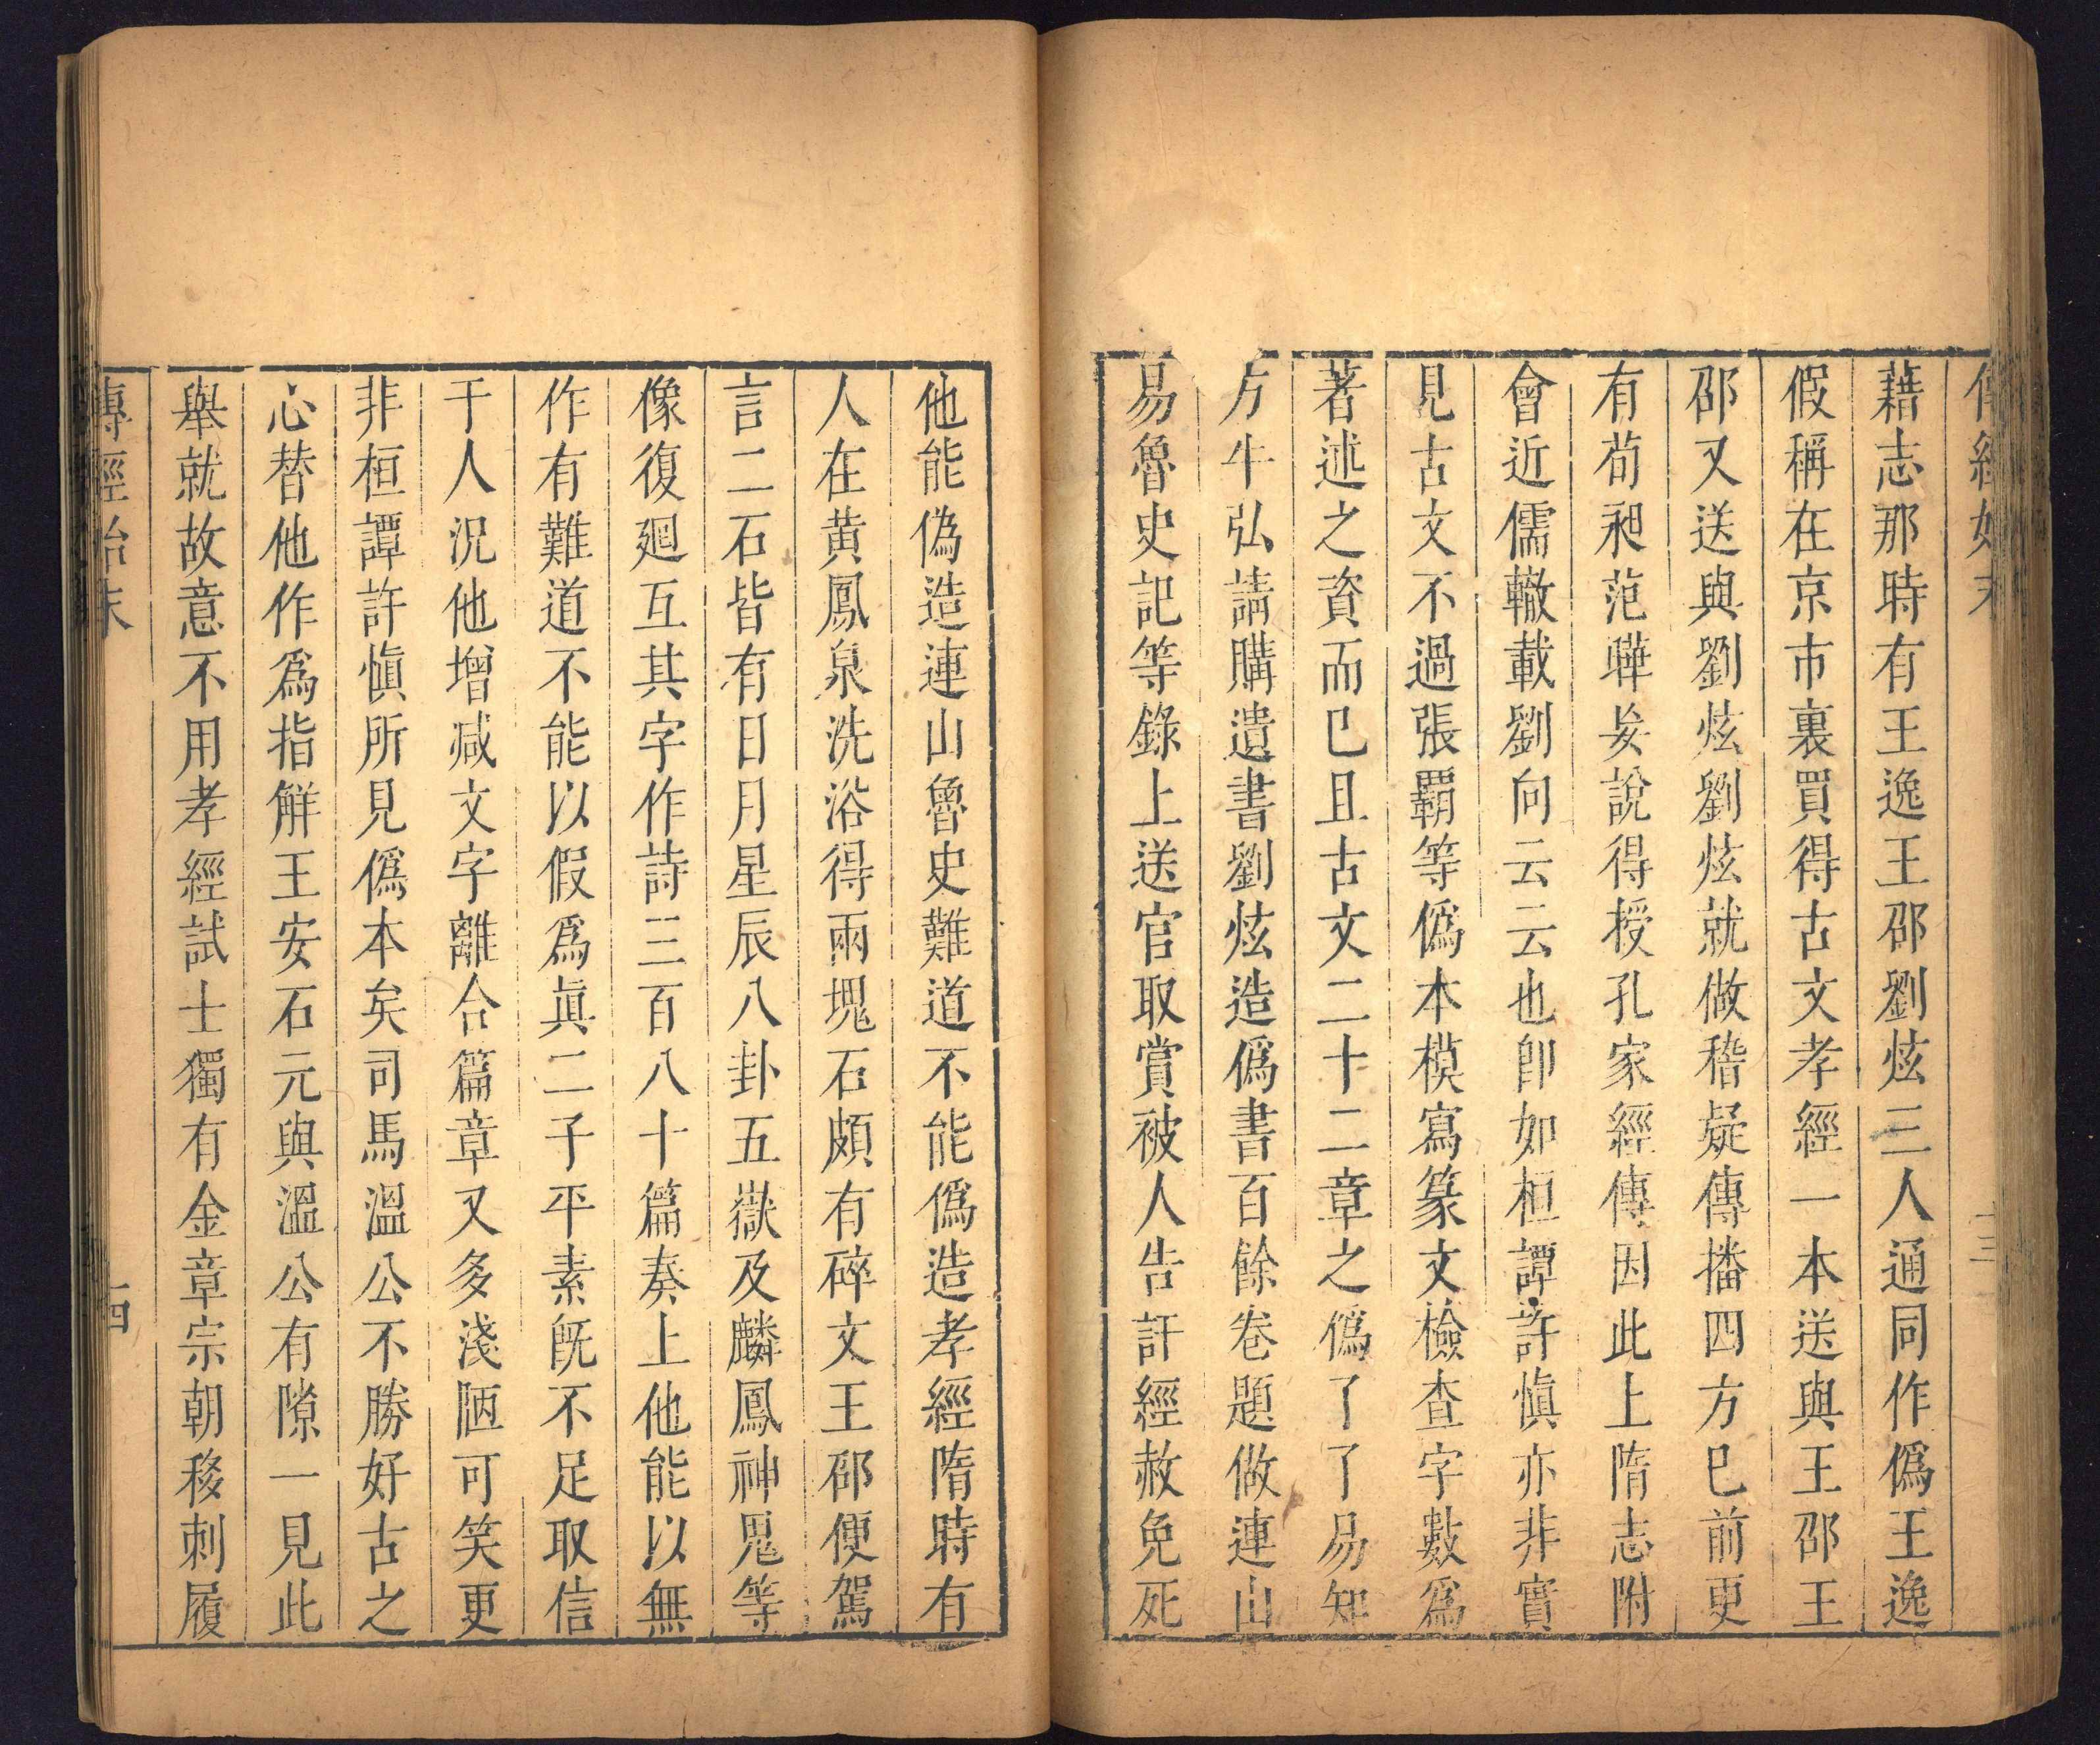 傳經始末
十三
藉志那時有王逸王邵劉炫三人通同作僞王逸
假稱在京市裏買得古文孝經一本送與王邵王
邵又送與劉炫劉炫就做稽疑傳播四方已前更
有荀昶范曄妄說得授孔家經傳因此上隋志附
會近儒轍載劉向云云也卽如桓譚許愼亦非實
見古文不過張霸等僞本模寫篆文檢查字數爲
著述之資而已且古文二十二章之僞了了易知
方牛弘請購遺書劉炫造僞書百餘卷題做連山
易魯史記等錄上送官取賞被人告訐經赦免死
他能偽造連山魯史難道不能僞造孝經隋時有
人在黄鳳泉洗浴得兩塊石頗有碎文王邵便駕
言二石皆有日月星辰八卦五嶽及麟鳳神鬼等
像復廻互其字作詩三百八十篇奏上他能以無
作有難道不能以假爲眞二子平素旣不足取信
于人況他增減文字離合篇章又多淺陋可笑更
非桓譚許愼所見僞本矣司馬溫公不勝好古之
心替他作爲指解王安石元與溫公有隙一見此
舉就故意不用孝經試士獨有金章宗朝移刺履
傳經始末
十四